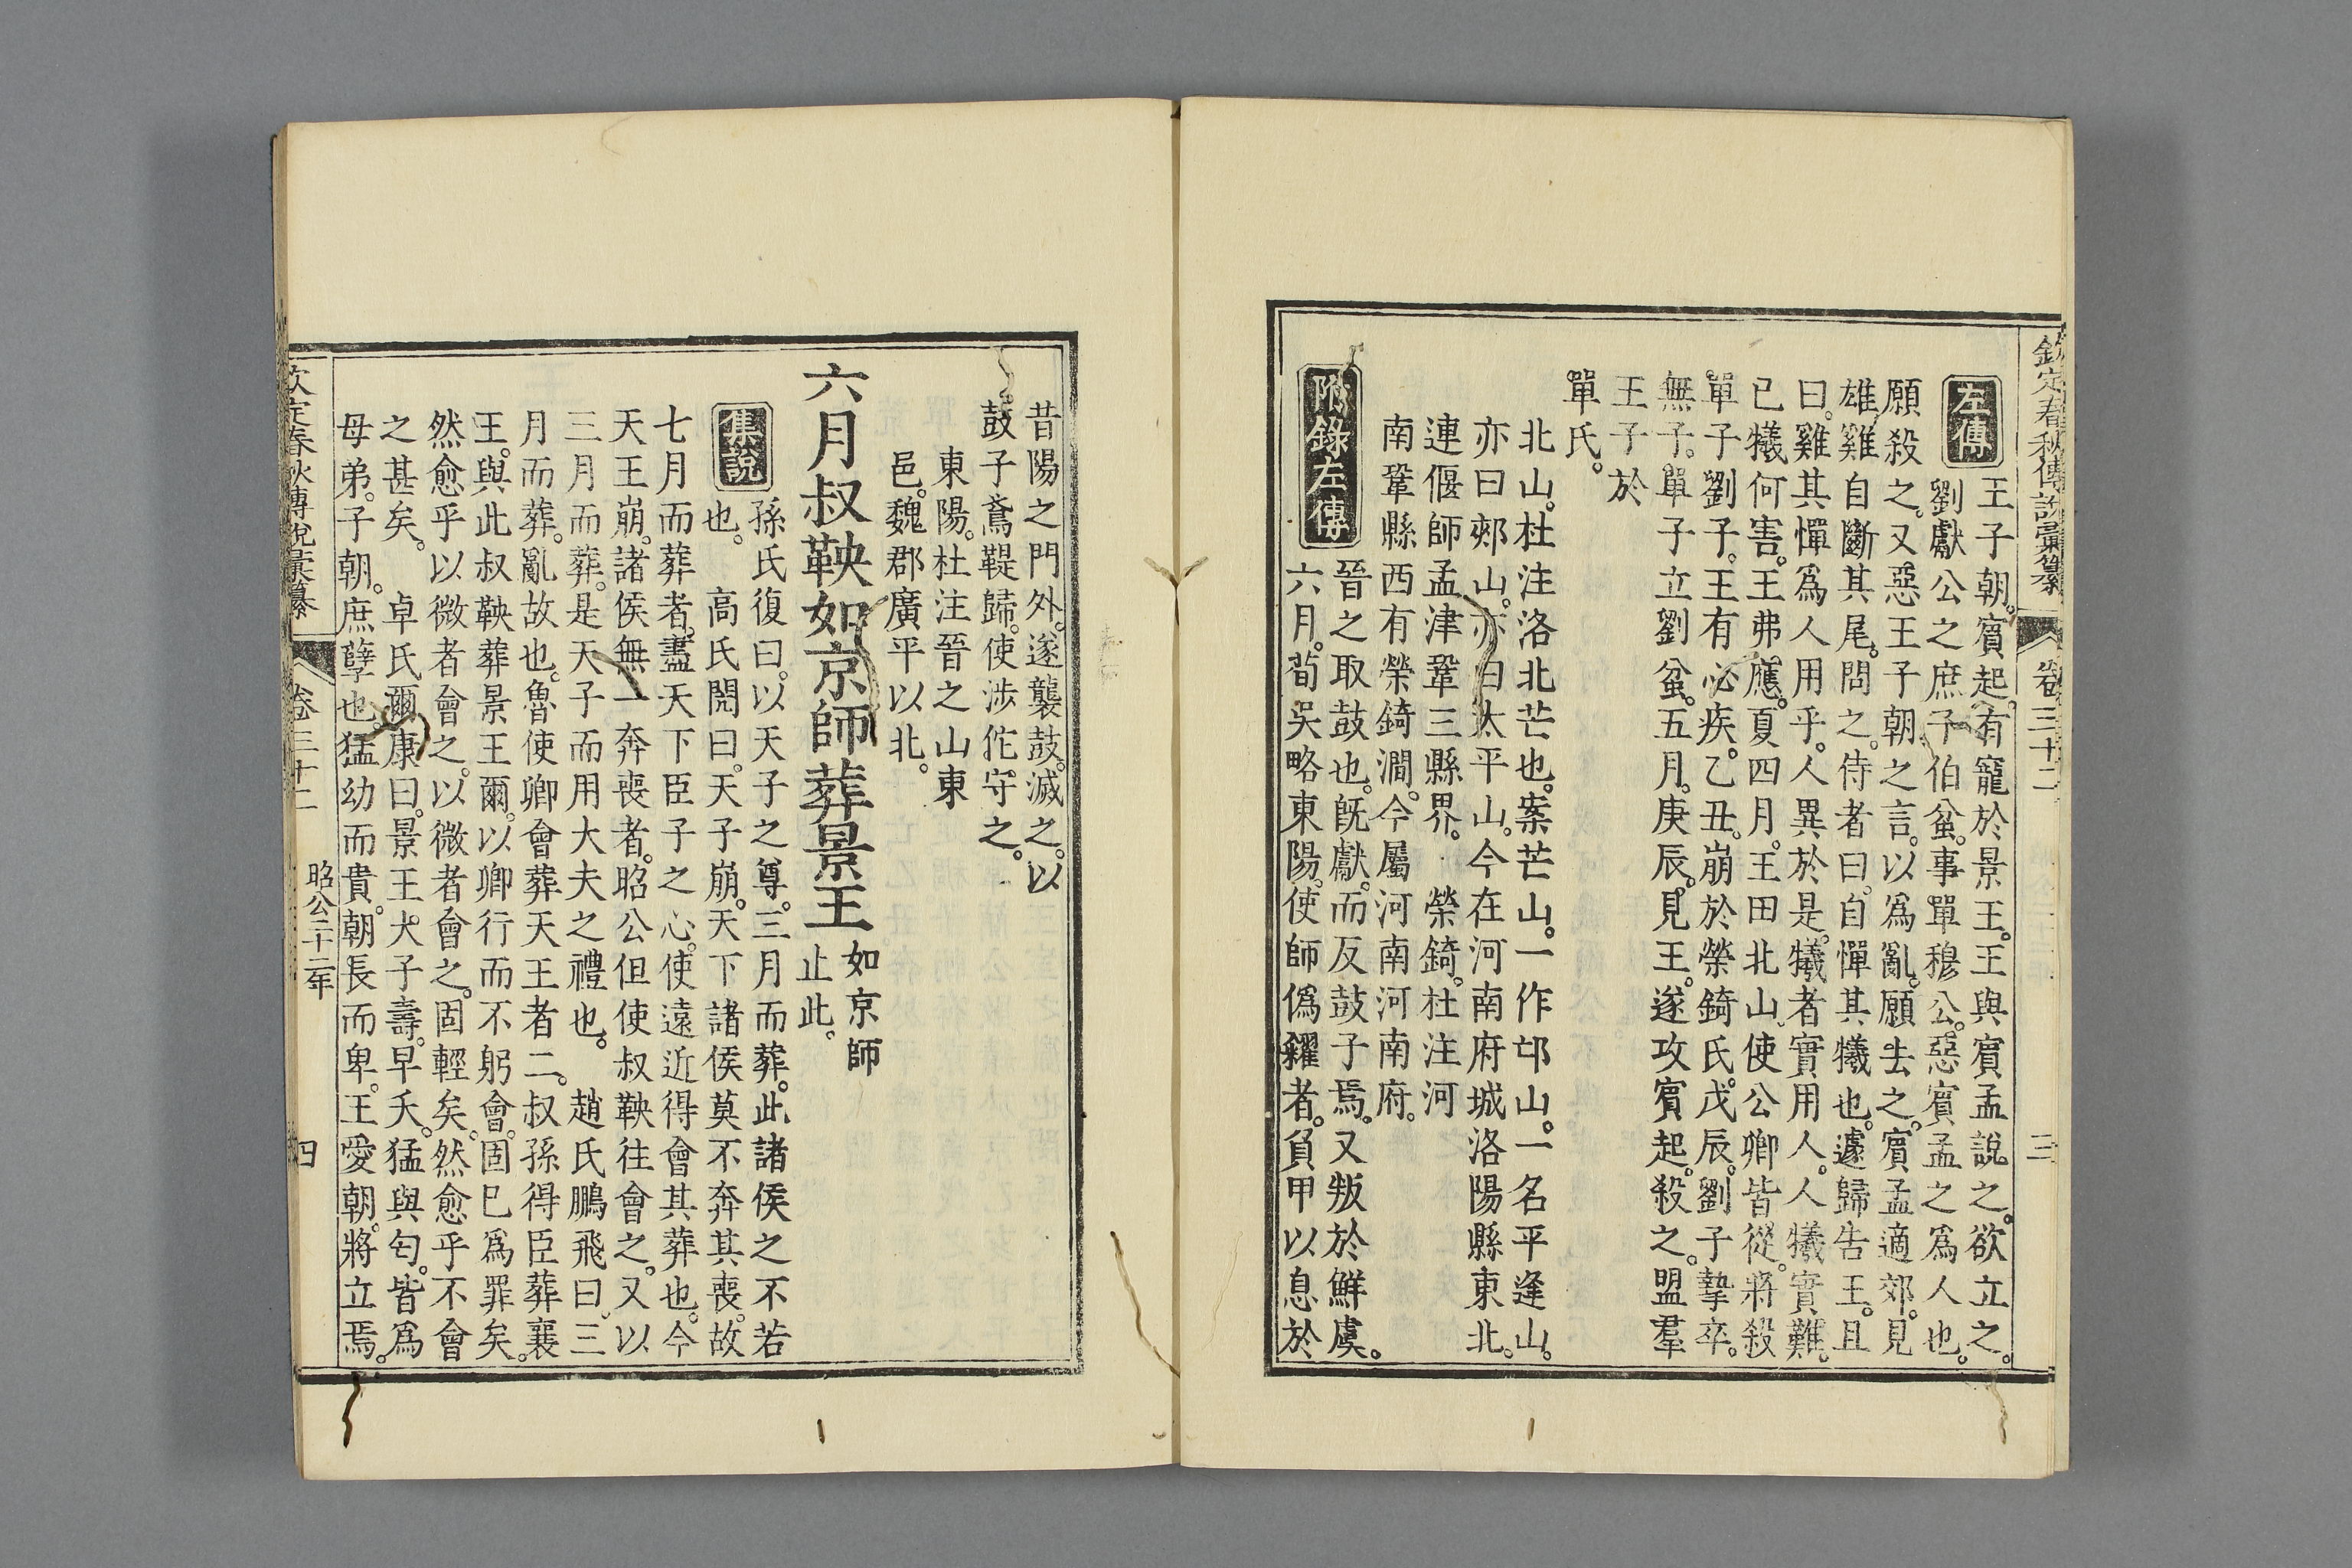 欽定春秋傳說彙纂 卷三十二 三
左傳
王子朝。賓起。有寵於景王。王與賓孟說之。欲立之。
劉獻公之庶子伯蚠。事單穆公。惡賓孟之爲人也。
願殺之。又惡王子朝之言。以爲亂。願去之。賓孟適郊。見
雄雞自斷其尾。問之。侍者曰。自憚其犧也。遽歸告王。且
曰。雞其憚爲人用乎。人異於是。犧者實用人。人犧實難。
已犧何害。王弗應。夏四月。王田北山。使公卿皆從。將殺
單子劉子。王有心疾。乙丑。崩於榮錡氏。戊辰。劉子摯卒。
無子。單子立劉蚠。五月。庚辰。見王。遂攻賓起。殺之。盟羣
王子於
單氏。
北山。杜注洛北芒也。案芒山。一作邙山。一名平逢山。
亦曰郟山。亦曰太平山。今在河南府城洛陽縣東北。
連偃師孟津鞏三縣界。 榮錡。杜注河
南鞏縣西有榮錡澗。今屬河南河南府。
附錄左傳
晉之取鼓也。旣獻。而反鼓子焉。又叛於鮮虞。
六月。荀吳略東陽。使師僞糴者。負甲以息於
昔陽之門外。遂襲鼓。滅之。以
鼓子鳶鞮歸。使涉佗守之。
東陽。杜注晉之山東
邑。魏郡廣平以北。
六月叔鞅如京師葬景王
如京師
止此。
集說
孫氏復曰。以天子之尊。三月而葬。此諸侯之不若
也。 高氏閌曰。天子崩。天下諸侯莫不奔其喪。故
七月而葬者。盡天下臣子之心。使遠近得會其葬也。今
天王崩。諸侯無一奔喪者。昭公但使叔鞅往會之。又以
三月而葬。是天子而用大夫之禮也。 趙氏鵬飛曰。三
月而葬。亂故也。魯使卿會葬天王者二。叔孫得臣葬襄
王。與此叔鞅葬景王爾。以卿行而不躬會。固已爲罪矣。
然愈乎以微者會之。以微者會之。固輕矣。然愈乎不會
之甚矣。 卓氏爾康曰。景王大子壽。早夭。猛與匄。皆爲
母弟。子朝。庶孽也。猛幼而貴。朝長而卑。王愛朝。將立焉。
欽定春秋傳說彙纂 卷三十二 昭公二十二年 四